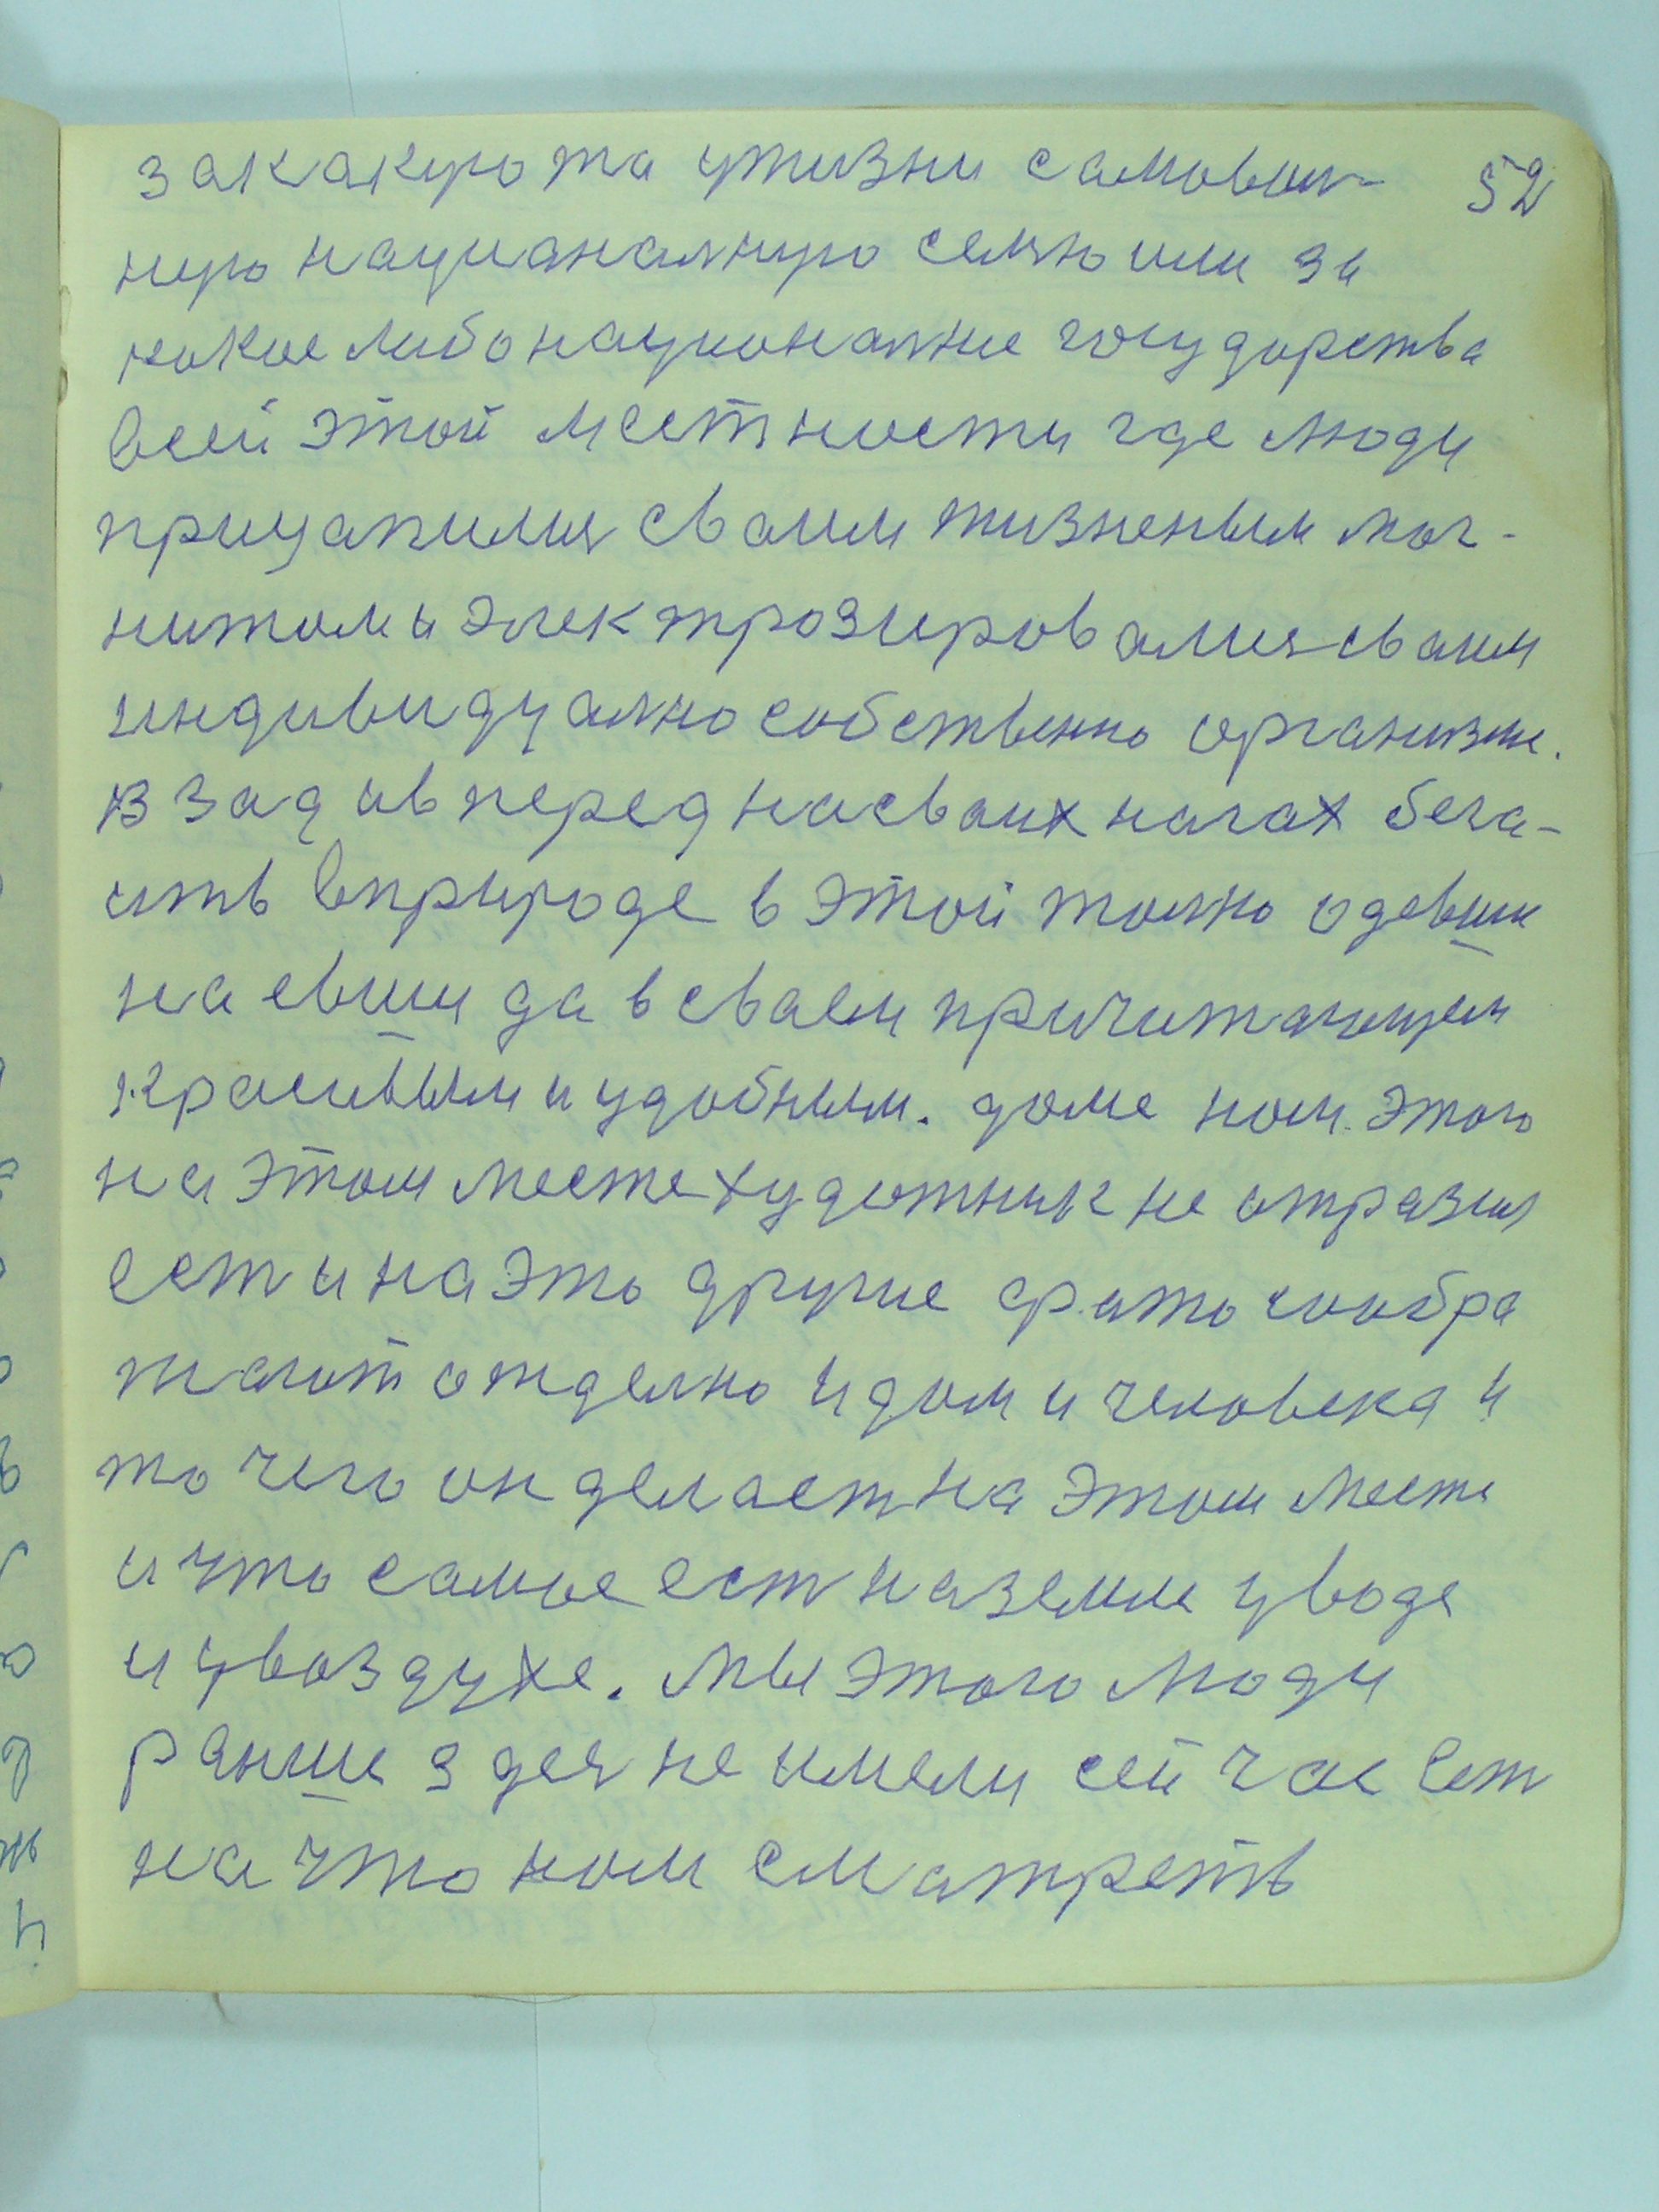 закакуюта ужизни самоволь- 52
ную нацианалную семю или за
кокое либо национални государства
всей этой местности где люди
прицапилися сваим жизненым маг-
нитом и электрозировалися сваим
индивидуално собственно организме.
взад ивперед насваих нагах бега-
ить вприроде в этой толко одевши
наевши да в сваем причитающем
красивым и удобным. доме ном этого
на этом месте художник не отразил
ест и на это другие фото сообра
жают отделно и дом и человека и
то чего он делает на этом месте
и что самое ест наземле уводе
и увоздухе. мы этого люди
ранше здеся не имели сей час ест
на что ном сматреть